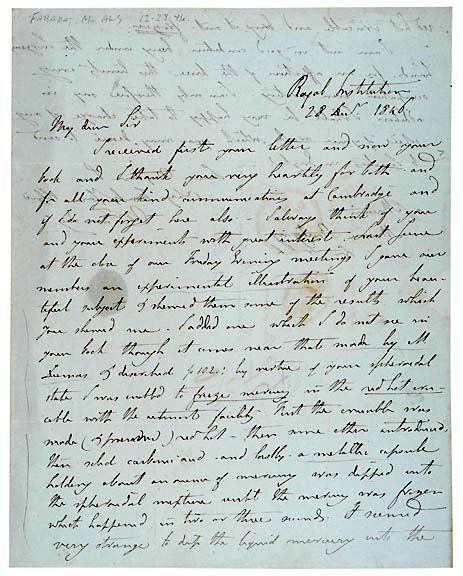 FARADAY, Mc Als 12-28-46
Royal Institution
28 Decr. 1846
My dear Sir
I received first your letter and now your
book and I thank you very heartily for both and
for all your kind communications Cambridge and
if I do not forget here also - I always think of you
and your experiment with great interest. Last June
at the close of our Friday Evening meetings I gave our
members an experimental illustration of your beau-
tiful subject & shewed them some of the results which
you shewed me. I added one which I do not see in
your book though it comes near that made by M
Dumas & described p 102; by virtue of your spheroidal
state I was enabled to freeze mercury in the red hot cru-
cible with the utmost facility. First the crucible was
made (& preserved) red hot - then some ether introduced,
then solid carbonic acid - and lastly a metallic capsule
holding about an ounce of mercury was dipped into
the spheroidal mixture until the mercury was frozen
which happened in two or three seconds. It seemed
very strange to dip the liquid mercury into the